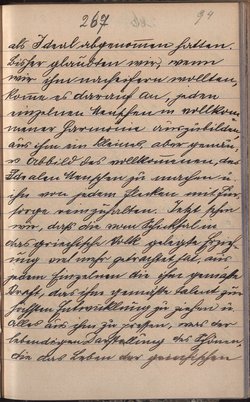 267
94
als Ideal abgenommen hatten.
Bisher glaubten wir, wenn
wir ihm nacheifern wollten,
komme es darauf an, jeden
einzelnen Menschen in vollkom-
mener Harmonie auszubilden,
aus ihm ein kleines, aber genau-
es Abbild des vollkommenen, des
Idealen Menschen zu machen u.
ihn von jedem Flecken mit Für-
sorge reinzuhalten. Jetzt sehen
wir, daß die vom Schicksal in
das griechische Volk gelegte Erzieh-
ung wo sehr getrachtet hat, aus
jedem Einzelnen die ihm gemäße
Kraft, das ihm gemäße Talent zur
höchsten Entwicklung zu ziehen u.
Alles aus ihm zu pressen, was der
lebendigen Darstellung des Schönen,
die das Leben der griechischen